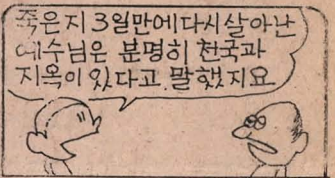 죽은지 3일만에 다시 살아난
예수님은 분명히 천국과
지옥이 있다고 말했지요